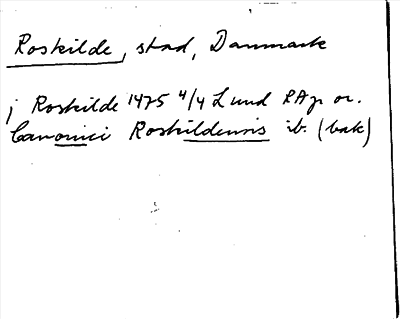 Roskilde, stad, Danmark
j Roskilde 1475 4/4 Lund RAp or.
Canonici Roskildensis ib. (bak)